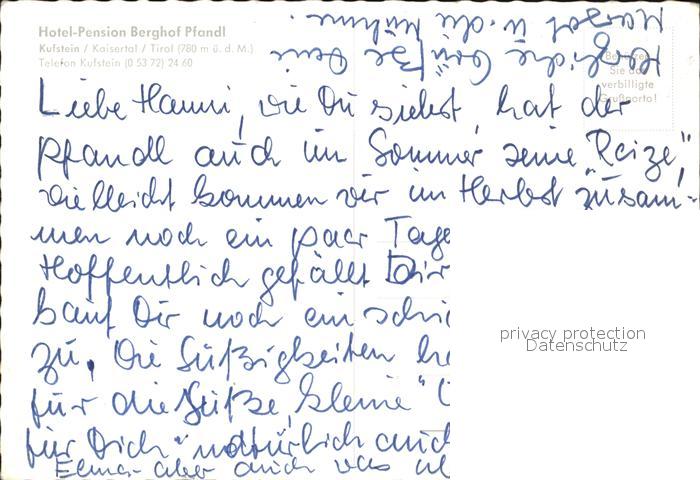 Hotel-Pension Berghof Pfandl
Kufstein / Kaisertal / Tirol (780 m ü. d. M.)
Telefon Kufstein (0 53 72) 24 60
Benützen
Sie das
verbilligte
Grußporto!
Liebe Hanni, wie Du siehst, hat der
Pfandl auch im Sommer seine „Reize",
vielleicht kommen wir im Herbst zusam-
men noch ein paar Tage
Hoffentlich gefällt Dir
kauf Dir noch ein
zu. Die Süßigkeiten
für die Süße „kleine"
für Dich" natürlich auch
aber auch was
Herzliche Grüße Deine
Margot u. die
privacy protection
Datenschutz